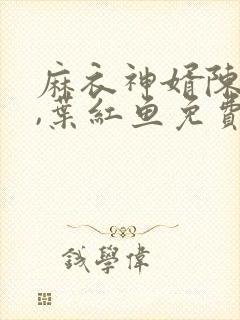 麻衣神婿陳
,葉紅鱼免費
銭學偉